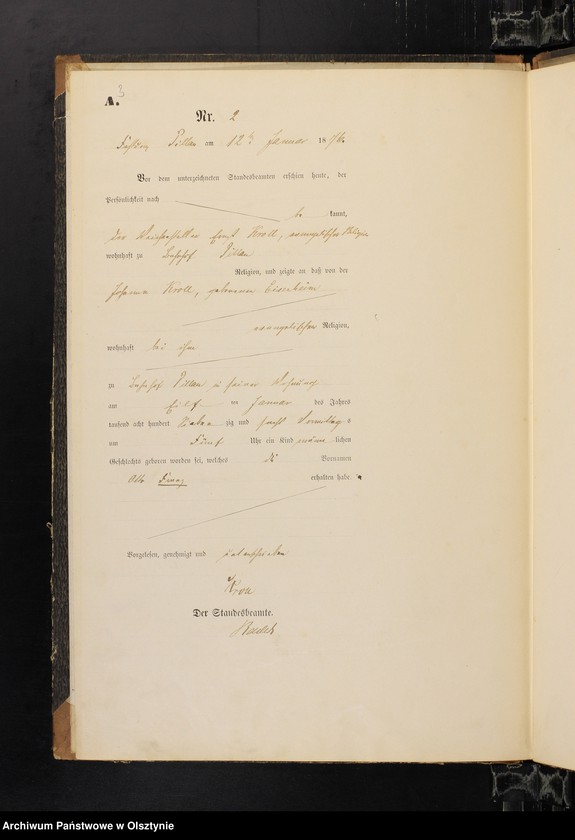 A.
Nr. 2
Pillau am 12ten Januar 1876.
Vor dem unterzeichneten Standesbeamten erschien heute, der
Persönlichkeit nach
be kannt,
der Kroll, evangelischer Religion
wohnhaft zu Bahnhof Pillau
Religion, und zeigte an daß von der
Johanna Kroll, geborenen
evangelischen Religion,
wohnhaft bei ihm
zu Bahnhof Pillau in seiner Wohnung
am eilf ten Januar des Jahres
tausend acht hundert sieben zig und sechs Vormittags
um Fünf Uhr ein Kind männ lichen
Geschlechts geboren worden sei, welches die Vornamen
Otto Franz erhalten habe.
Vorgelesen, genehmigt und unterschrieben
Kroll
Der Standesbeamte.
Archiwum Państwowe w Olsztynie